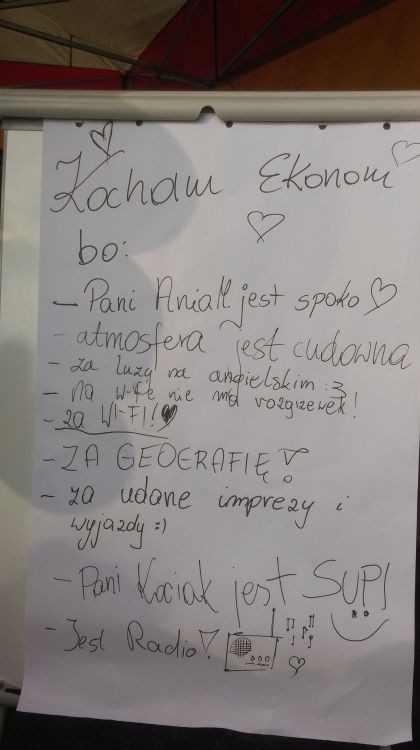 Kocham Ekonom
bo:
- Pani Ania M. jest spoko
- atmosfera jest cudowna
- za luzy na angielskim :3
- na w-fie nie ma rozgrzewek!
- za WI-FI!
- ZA GEOGRAFIĘ!
- za udane imprezy i
wyjazdy :)
- Pani Kociak jest SUPJ
- Jest Radio!